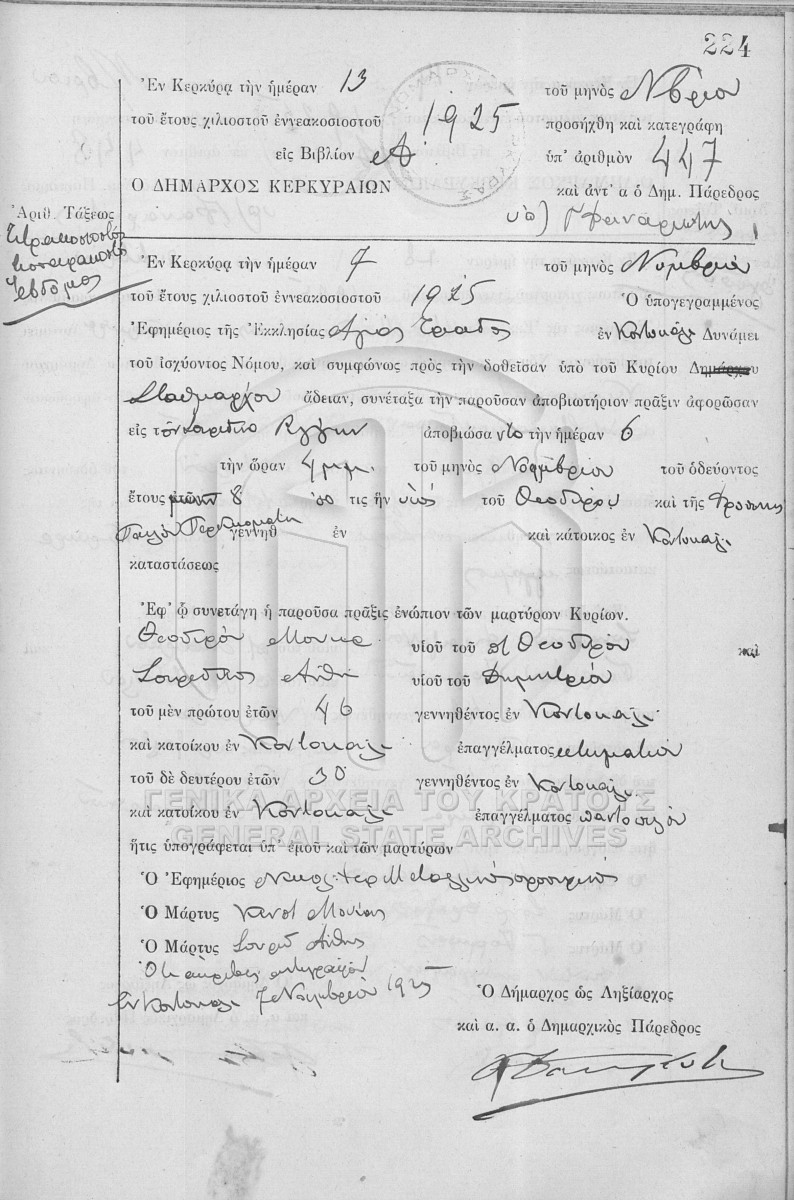 224
Ἐν Κερκύρᾳ τὴν ἡμέραν 13 τοῦ μηνὸς Νβρίου
τοῦ ἔτους χιλιοστοῦ ἐννεακοσιοστοῦ 1925 προσήχθη καὶ κατεγράφη
εἰς Βιβλίον Α' ὑπ' ἀριθμὸν 447
Ο ΔΗΜΑΡΧΟΣ ΚΕΡΚΥΡΑΙΩΝ καὶ ἀντ' α ὁ Δημ. Πάρεδρος
Ἀριθ. Τάξεως
Τετρακοσιοστὸν
τεσσαρακοστὸν
ἕβδομος
Ἐν Κερκύρᾳ τὴν ἡμέραν 7 τοῦ μηνὸς Νοεμβρίου
τοῦ ἔτους χιλιοστοῦ ἐννεακοσιοστοῦ 1925 Ὁ ὑπογεγραμμένος
Ἐφημέριος τῆς Ἐκκλησίας Ἁγίας Τριάδος ἐν Κοντοκάλι Δυνάμει
τοῦ ἰσχύοντος Νόμου, καὶ συμφώνως πρὸς τὴν δοθεῖσαν ὑπὸ τοῦ Κυρίου Δημάρχου
Σταθμάρχου ἄδειαν, συνέταξα τὴν παροῦσαν ἀποβιωτήριον πρᾶξιν ἀφορῶσαν
εἰς τὸν Σπυρίδωνα ἀποβιώσαντα τὴν ἡμέραν 6
τὴν ὥραν 4 μ.μ. τοῦ μηνὸς Νοεμβρίου τοῦ ὁδεύοντος
ἔτους 8 τις ἦν υἱὸς τοῦ Θεοδώρου καὶ τῆς
γεννηθ ἐν καὶ κάτοικος ἐν Κοντοκάλι
καταστάσεως
Ἐφ' ᾧ συνετάγη ἡ παροῦσα πρᾶξις ἐνώπιον τῶν μαρτύρων Κυρίων.
Θεοδώρου υἱοῦ τοῦ Θεοδώρου καὶ
Σπυρίδωνος υἱοῦ τοῦ Δημητρίου
τοῦ μὲν πρώτου ἐτῶν 46 γεννηθέντος ἐν Κοντοκάλι
καὶ κατοίκου ἐν Κοντοκάλι ἐπαγγέλματος κτηματίου
τοῦ δὲ δευτέρου ἐτῶν 30 γεννηθέντος ἐν Κοντοκάλι
καὶ κατοίκου ἐν Κοντοκάλι ἐπαγγέλματος παντοπώλου
ΓΕΝΙΚΑ ΑΡΧΕΙΑ ΤΟΥ ΚΡΑΤΟΥΣ
GENERAL STATE ARCHIVES
ἥτις ὑπογράφεται ὑπ' ἐμοῦ καὶ τῶν μαρτύρων
Ὁ Ἐφημέριος
Ὁ Μάρτυς
Ὁ Μάρτυς
Ὅτι ἀκριβὲς ἀντίγραφον
Ἐν Κοντοκάλι 7 Νοεμβρίου 1925
Ὁ Δήμαρχος ὡς Ληξίαρχος
καὶ α. α. ὁ Δημαρχικὸς Πάρεδρος